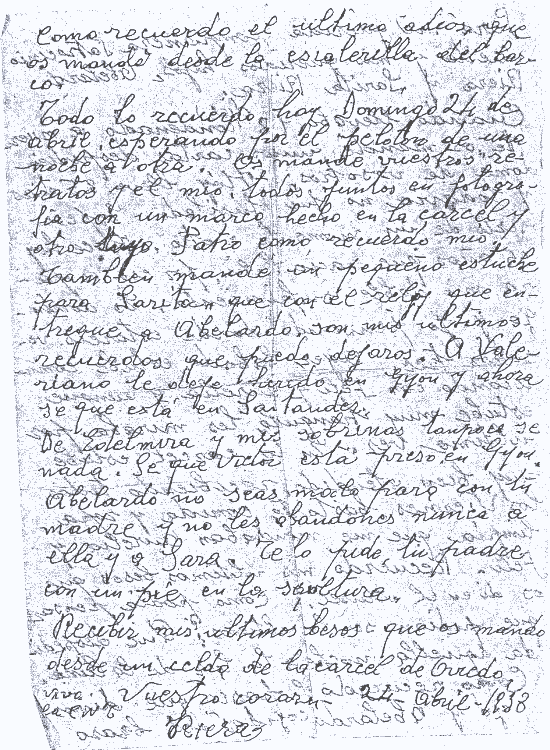 como recuerdo el ultimo adios que
os mande desde la escalerilla del bar-
co.
Todo lo recuerdo hoy Domingo 24 de
abril esperando por el peloton de una
noche a otra. Os mande vuestros re-
tratos y el mio, todos juntos en fotogra-
fia con un marco hecho en la carcel y
otro tuyo. Patro como recuerdo mio.
Tambien mande un pequeño estuche
para Sarita, que con el reloj que en-
tregue a Abelardo, son mis ultimos
recuerdos que puedo dejaros. A Vale-
riano le deje herido en Gijon y ahora
se que está en Santander.
De Edelmira y mis sobrinas tampoco se
nada. Se que Victor está preso en Gijon.
Abelardo no seas malo para con tu
madre y no les abandones nunca a
ella y a Sara. Te lo pide tu padre
con un pie en la
Recibir mis ultimos besos que os mando
desde un celda de la carcel de Oviedo
Viva Vuestro corazon 24 Abril-1938
la